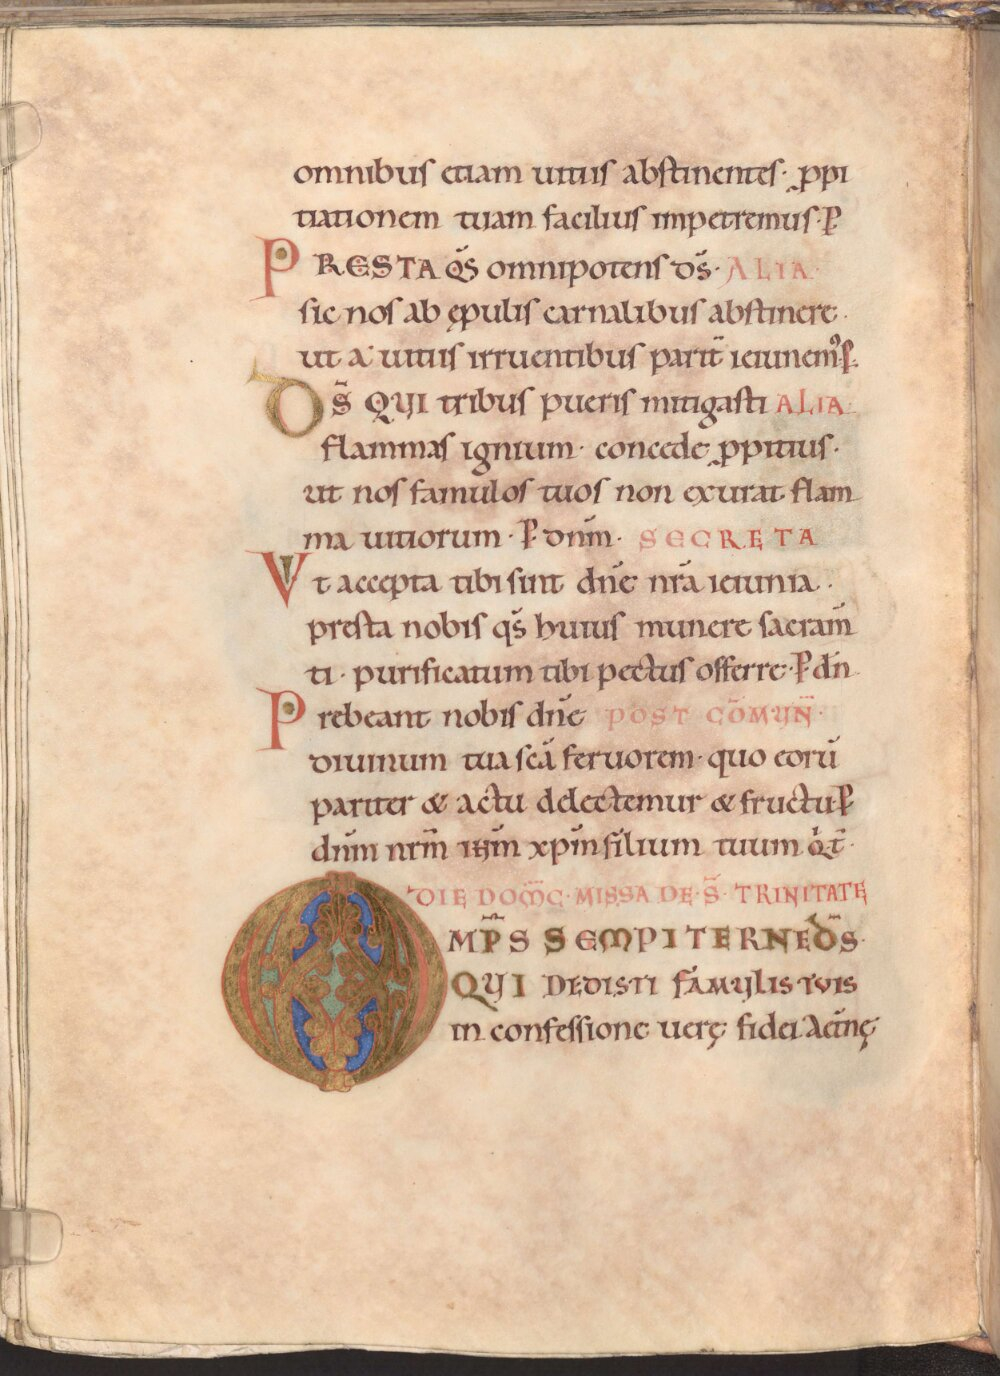 omnibus etiam uitiis abstinentes· ꝓpi
tiationem tuam facilius impetremus· P̄
PRESTA Q̄S omnipotens d̄s· ALIA·
sic nos ab ępulis carnalibus abstinere·
ut a uitiis irruentibus parit̄ ieiunem᷒· P̄
D̄S QUI tribus pueris mitigasti ALIA·
flammas ignium· concede ꝓpitius·
ut nos famulos tuos non exurat flam
ma uitiorum· P̄ dnm̄· SECRETA
Vt accepta tibi sint dn̄e nr̄a ieiunia·
presta nobis qs̄ huius munere sacram̄
ti· purificatum tibi pectus offerre· P̄ dn̄
Prebeant nobis dn̄e POST COM̄UN̄·
diuinum tua scā feruorem· quo eorū
pariter & actu delectemur & fructu P̄
dnm̄ nrm̄ ihm̄ xpm̄ filium tuum q̄ t̄·
DIE DOM̄C· MISSA DE S̄· TRINITATE
OMP̄S SEMPITERNE D̄S·
QUI DEDISTI FAMULIS TUIS
in confessione uerę fidei aetnę